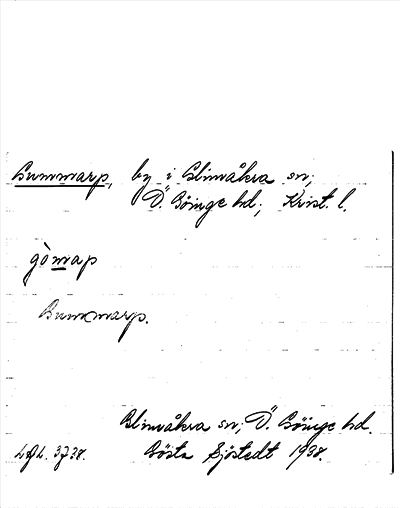 Gummarp, by i Glimåkra sn;
Ö. Göinge hd; Krist. l.
gòmap
Gummarp.
Glimåkra sn; Ö. Göinge hd.
Gösta Sjöstedt 1938.